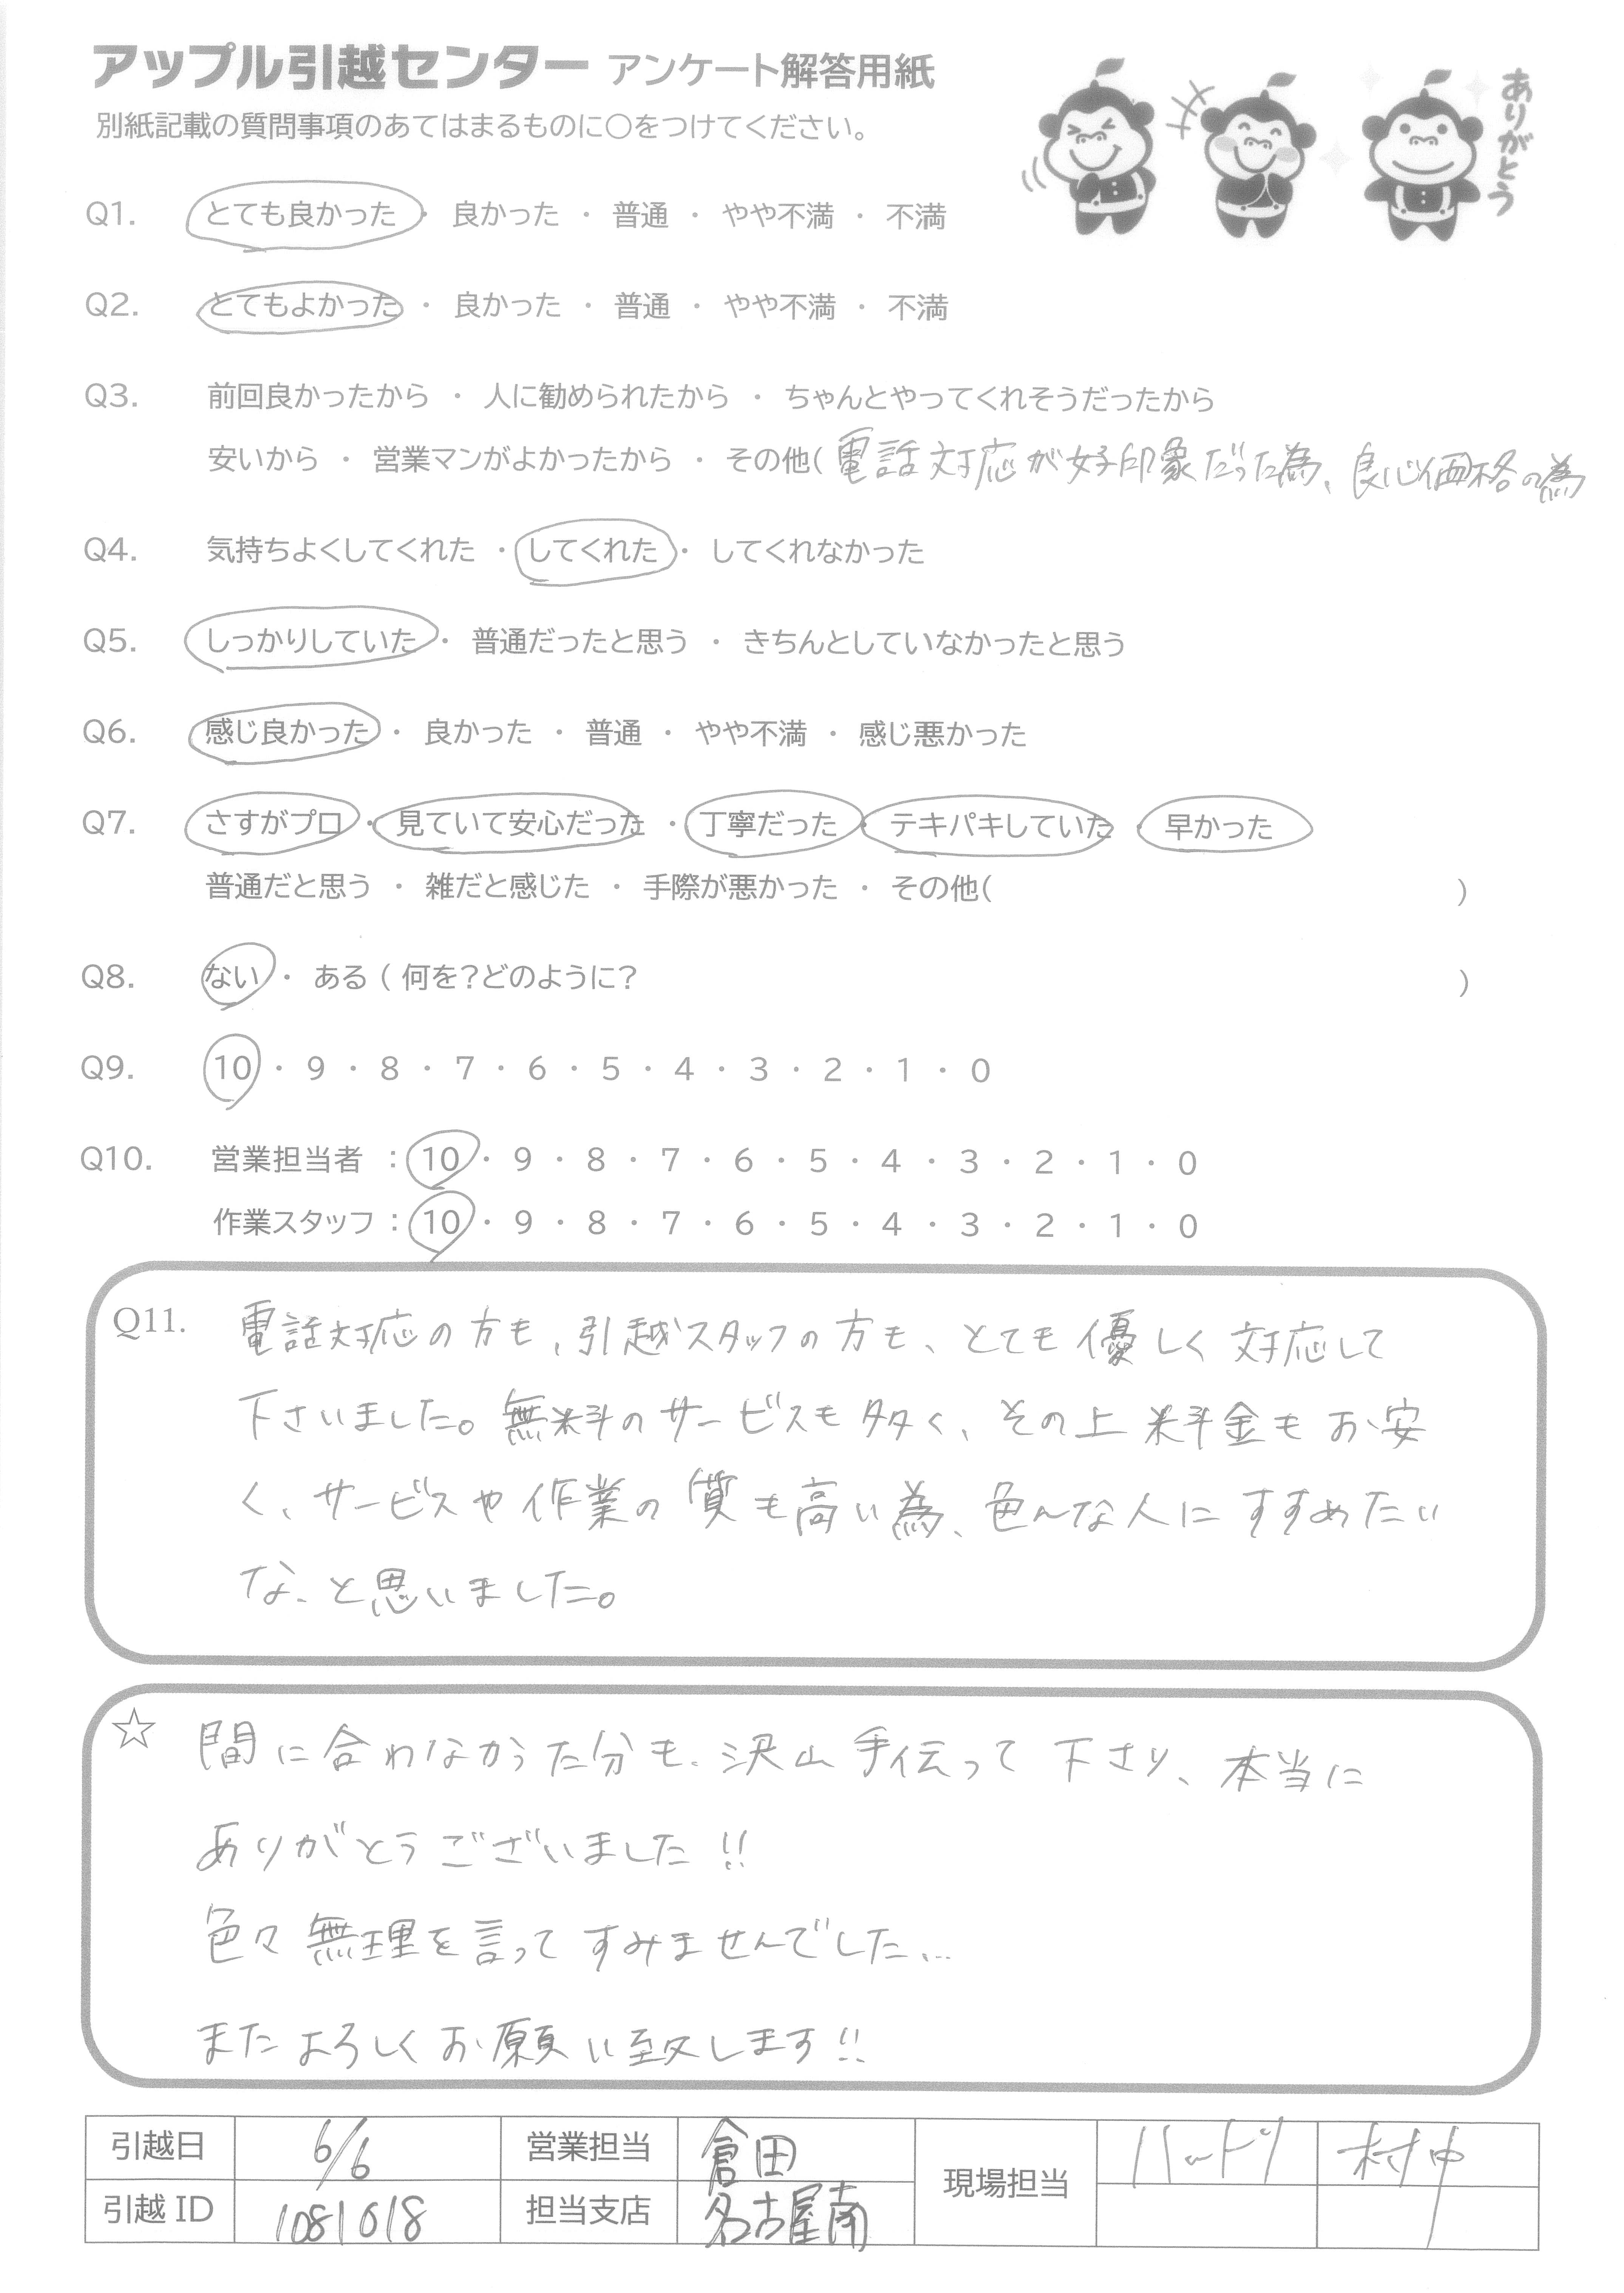 アップル引越センター アンケート解答用紙
別紙記載の質問事項のあてはまるものに○をつけてください。
ありがとう
Q1. とても良かった ・ 良かった ・ 普通 ・ やや不満 ・ 不満
Q2. とてもよかった ・ 良かった ・ 普通 ・ やや不満 ・ 不満
Q3. 前回良かったから ・ 人に勧められたから ・ ちゃんとやってくれそうだったから
安いから ・ 営業マンがよかったから ・ その他( 電話対応が好印象だった為、良心価格の為
Q4. 気持ちよくしてくれた ・ してくれた ・ してくれなかった
Q5. しっかりしていた ・ 普通だったと思う ・ きちんとしていなかったと思う
Q6. 感じ良かった ・ 良かった ・ 普通 ・ やや不満 ・ 感じ悪かった
Q7. さすがプロ ・ 見ていて安心だった ・ 丁寧だった ・ テキパキしていた ・ 早かった
普通だと思う ・ 雑だと感じた ・ 手際が悪かった ・ その他( )
Q8. ない ・ ある ( 何を?どのように? )
Q9. 10 ・ 9 ・ 8 ・ 7 ・ 6 ・ 5 ・ 4 ・ 3 ・ 2 ・ 1 ・ 0
Q10. 営業担当者 : 10 ・ 9 ・ 8 ・ 7 ・ 6 ・ 5 ・ 4 ・ 3 ・ 2 ・ 1 ・ 0
作業スタッフ : 10 ・ 9 ・ 8 ・ 7 ・ 6 ・ 5 ・ 4 ・ 3 ・ 2 ・ 1 ・ 0
Q11. 電話対応の方も、引越スタッフの方も、とても優しく対応して
下さいました。無料のサービスも多く、その上料金もお安
く、サービスや作業の質も高い為、色んな人にすすめたい
な、と思いました。
☆ 間に合わなかった分も、沢山手伝って下さり、本当に
ありがとうございました!!
色々無理を言ってすみませんでした…
またよろしくお願い致します!!
引越日 6/6 営業担当 倉田 現場担当 村中
引越ID 1081618 担当支店 名古屋南